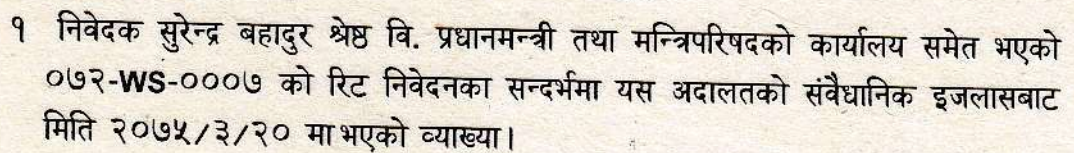 १ निवेदक सुरेन्द्र बहादुर श्रेष्ठ वि. प्रधानमन्त्री तथा मन्त्रिपरिषदको कार्यालय समेत भएको
०७२-WS-०००७ को रिट निवेदनका सन्दर्भमा यस अदालतको संवैधानिक इजलासबाट
मिति २०७५/३/२० मा भएको व्याख्या।